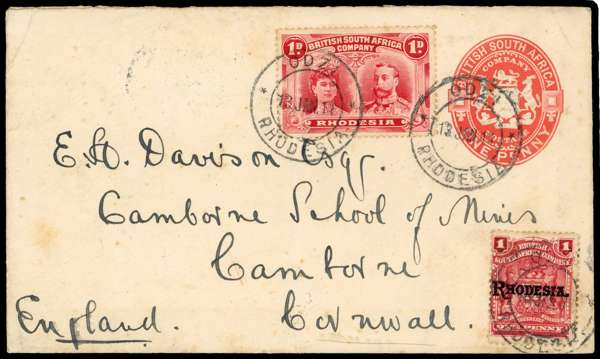 1D BRITISH SOUTH AFRICA 1D
COMPANY
RHODESIA
ODZI
RHODESIA
BRITISH SOUTH AFRICA
COMPANY
ONE PENNY
ODZI
RHODESIA
E. H. Davison Esq.
Camborne School of Mines
Camborne
England. Cornwall.
1 BRITISH 1
SOUTH AFRICA COMPANY
RHODESIA.
PENNY